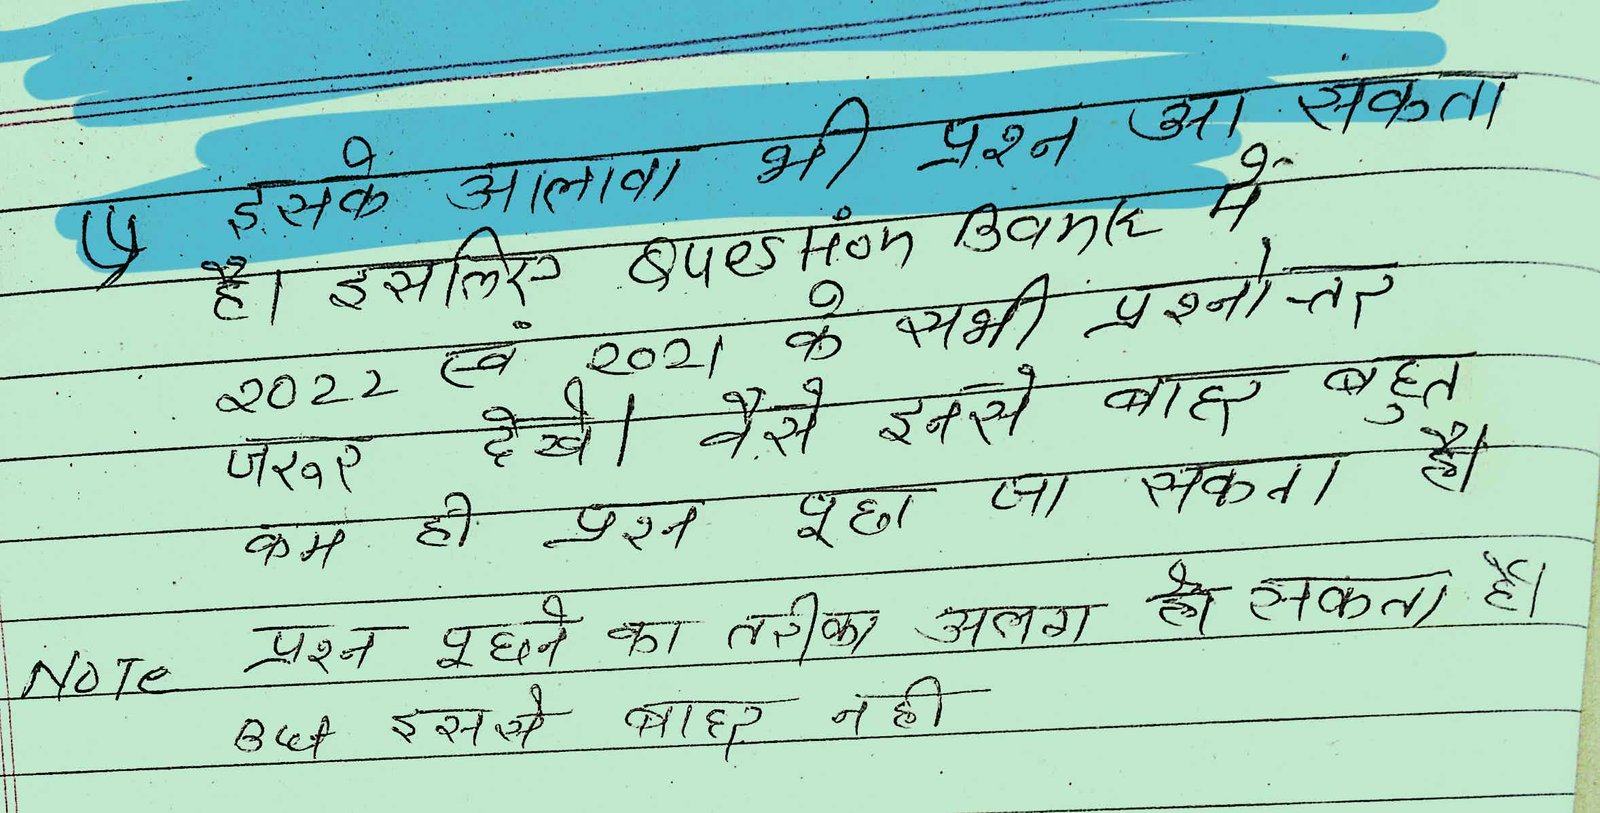 इसके आलावा भी प्रश्न आ सकता
है। इसलिए Question Bank में
2022 एवं 2021 के सभी प्रश्नोत्तर
जरूर देखे। वैसे इनसे बाहर बहुत
कम ही प्रश्न पूछा जा सकता है।
NOTe प्रश्न पूछने का तरीका अलग हो सकता है।
But इससे बाहर नही